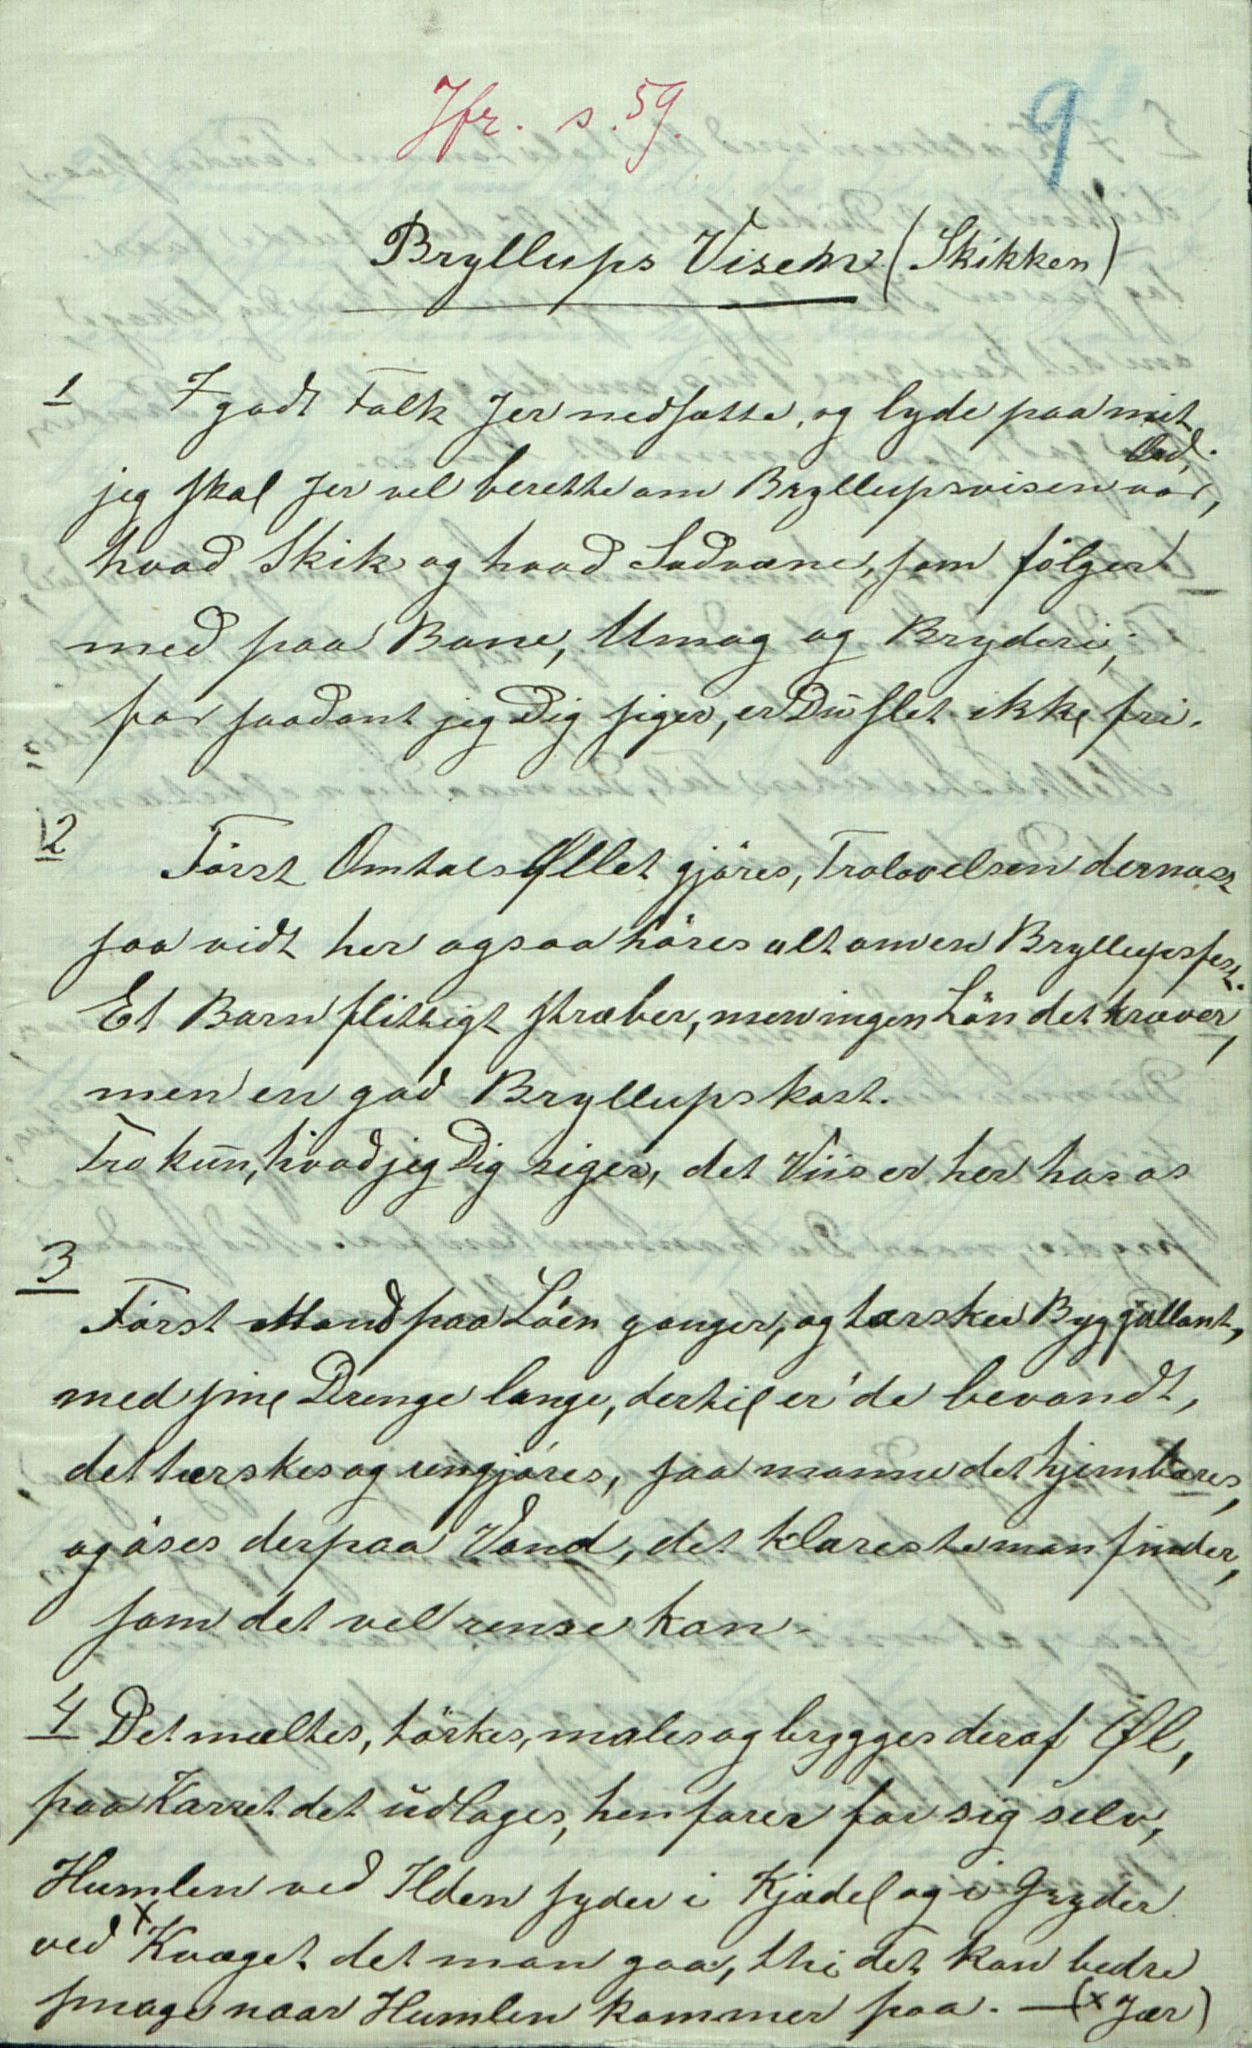 Jfr. s. 59.
9
Bryllups Visen (Skikken)
1 I godt Folk Jer nedsætte, og lyde paa mit Ord,
jeg skal Jer vel berette om Bryllupsvisen vor,
hvad Skik og hvad Sædvane, som fölger
med paa Bane, Umag og Bryderi,
for saadant jeg Dig siger, er Du slet ikke fri.
2 Först Omtals Øllet gjöres, Trolovelsen dernæst
saa vidt her ogsaa höres alt om en Bryllupsfest.
Et Barn flittigt stræber, men ingen Lön det kræver,
men en god Bryllupskost.
Tro kun, hvad jeg Dig siger, det Viis er her hos os
3
Först Mand paa Löen ganger, og tærsker Byg gallant,
med sine Drenge lange, dertil er de bevandt,
det tærskes og rengjöres, saa monne det hjembæres,
og öses derpaa Vand, det klareste man finder,
som det vel rense kan.
4 Det mæltes, törkes, males og brygges deraf Øl,
paa Karret det udlages, hen farer for sig selv,
Humlen ved Ilden syder i Kjædel og i Gryder
ved x Kvæget det mon gaa, thi det kan bedre
smage naar Humlen kommer paa. — (x Jær)